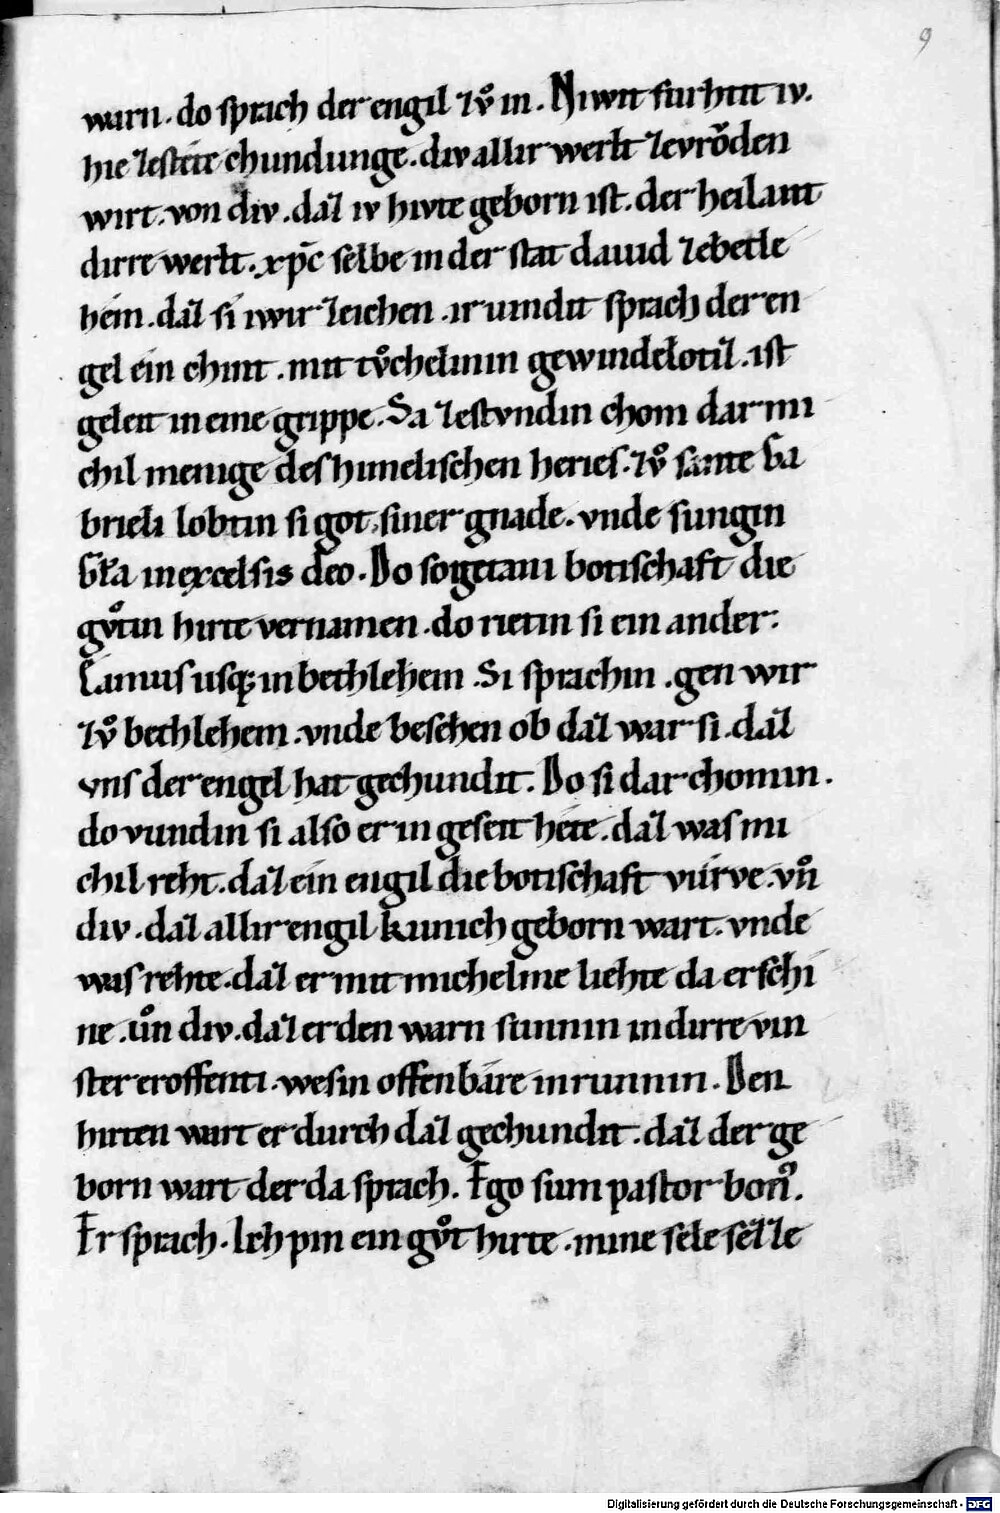 9
warn. do sprach der engil zů in. Niwit furhtit iv.
hie zestéte chundunge. div allir werlt zevrŏden
wirt. von div. daz iv hivte geborn ist. der heilant
dirre werlt. xp̄c selbe in der stat dauid zebetle
hém. daz si iwir zeichen. ir uindit sprach der en
gel ein chint. mit tůchelinin gewindelotiz. ist
geleit in eine grippe. Sa zestvndin chom dar mi
chil menige des himelischen heries. zů sante Ga
brieli lobtin si got siner gnade. vnde sungin
Gła in excelsis deo. Do sogetani botischaft die
gůtin hirte vernamen. do rietin si ein ander.
Eamus usq; in bethlehem. Si sprachin. gen wir
zů bethlehem. vnde besehen ob daz war si. daz
vns der engel hat gechundit. Do si dar chomin.
do vundin si also er in geseit héte. daz was mi
chil reht. daz ein engil die botischaft vůrve. vn̊
div. daz allir engil kunich geborn wart. vnde
was rehte. daz er mit michelme liehte da erschi
ne. ůn div. daz er den warn sunnin in dirre vin
ster eroffenti. wesin offenbâre inrunnin. Den
hirten wart er durch daz gechundit. daz der ge
born wart der da sprach. Ego sum pastor bon᾽.
Er sprach. Ich pin ein gůt hirte. mine sele sezze
Digitalisierung gefördert durch die Deutsche Forschungsgemeinschaft - DFG